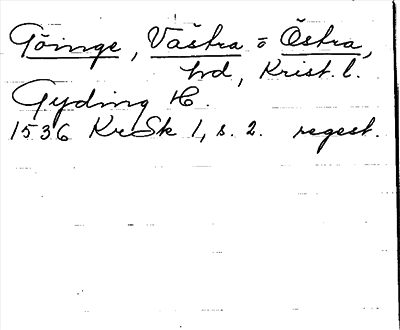 Göinge, Västra o Östra,
hd, Krist. l.
Gyding H.
1536 KrSk 1, s. 2. regest.